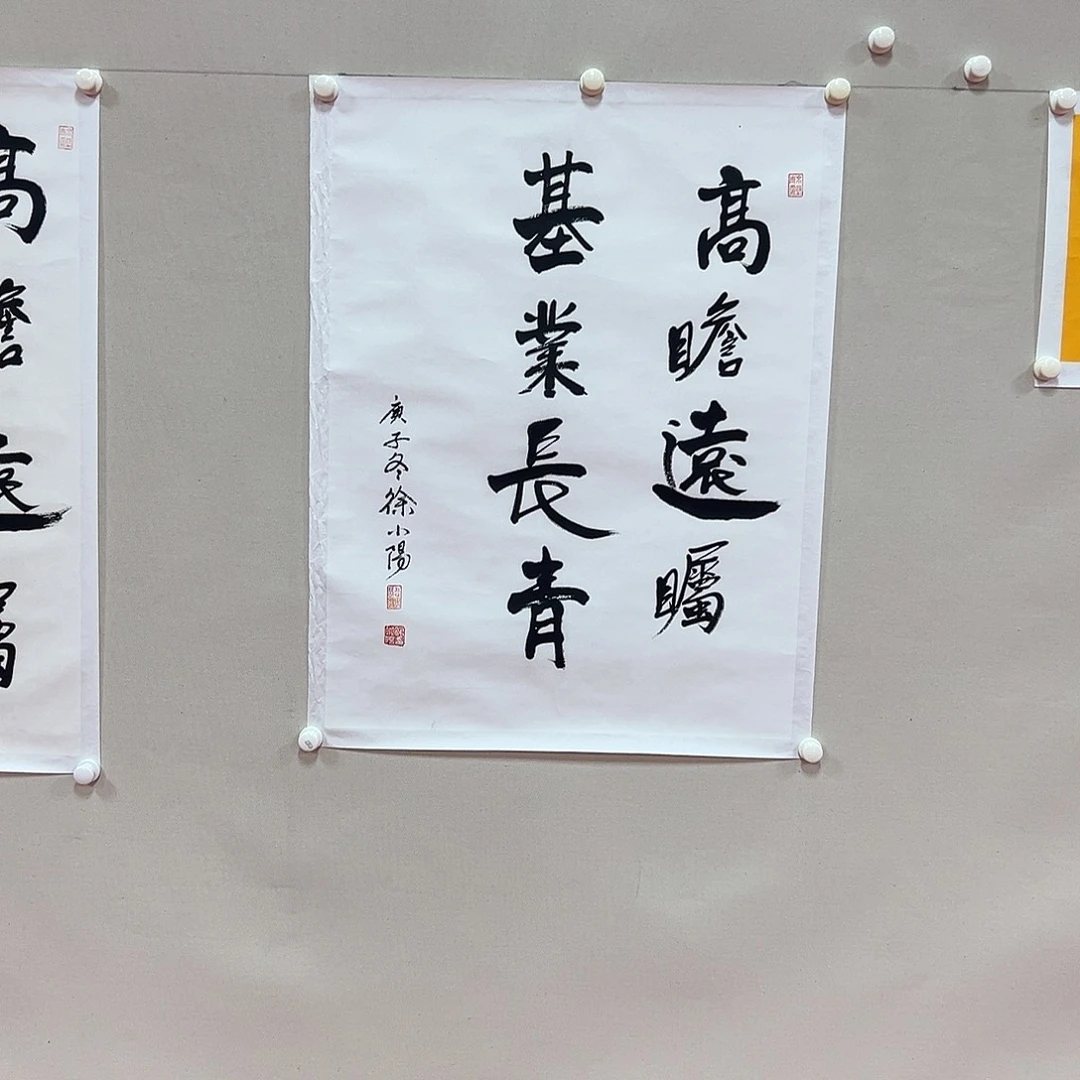 高瞻遠矚
基業長青
庚子冬徐小陽
高瞻遠矚